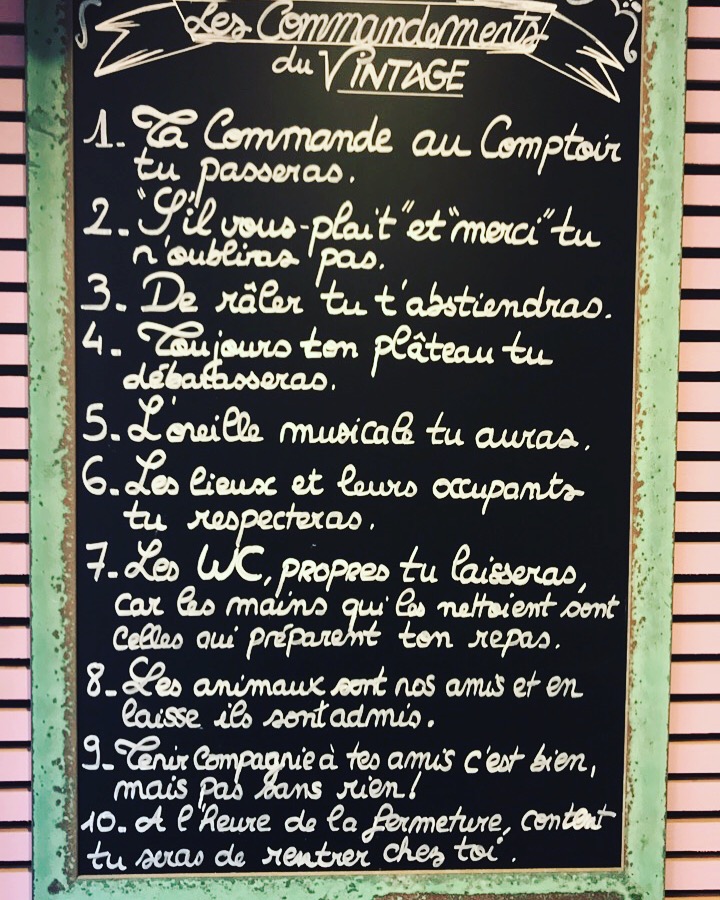 Les Commandements
du VINTAGE
1. Ta Commande au Comptoir
tu passeras.
2. "S'il vous-plait" et "merci" tu
n'oubliras pas.
3. De râler tu t'abstiendras.
4. Toujours ton plâteau tu
débarasseras.
5. L'oreille musicale tu auras.
6. Les lieux et leurs occupants
tu respecteras.
7. Les WC, propres tu laisseras,
car les mains qui les nettoient sont
celles qui préparent ton repas.
8. Les animaux sont nos amis et en
laisse ils sont admis.
9. Tenir Compagnie à tes amis c'est bien,
mais pas sans rien!
10. A l'heure de la fermeture, content
tu seras de rentrer chez toi.